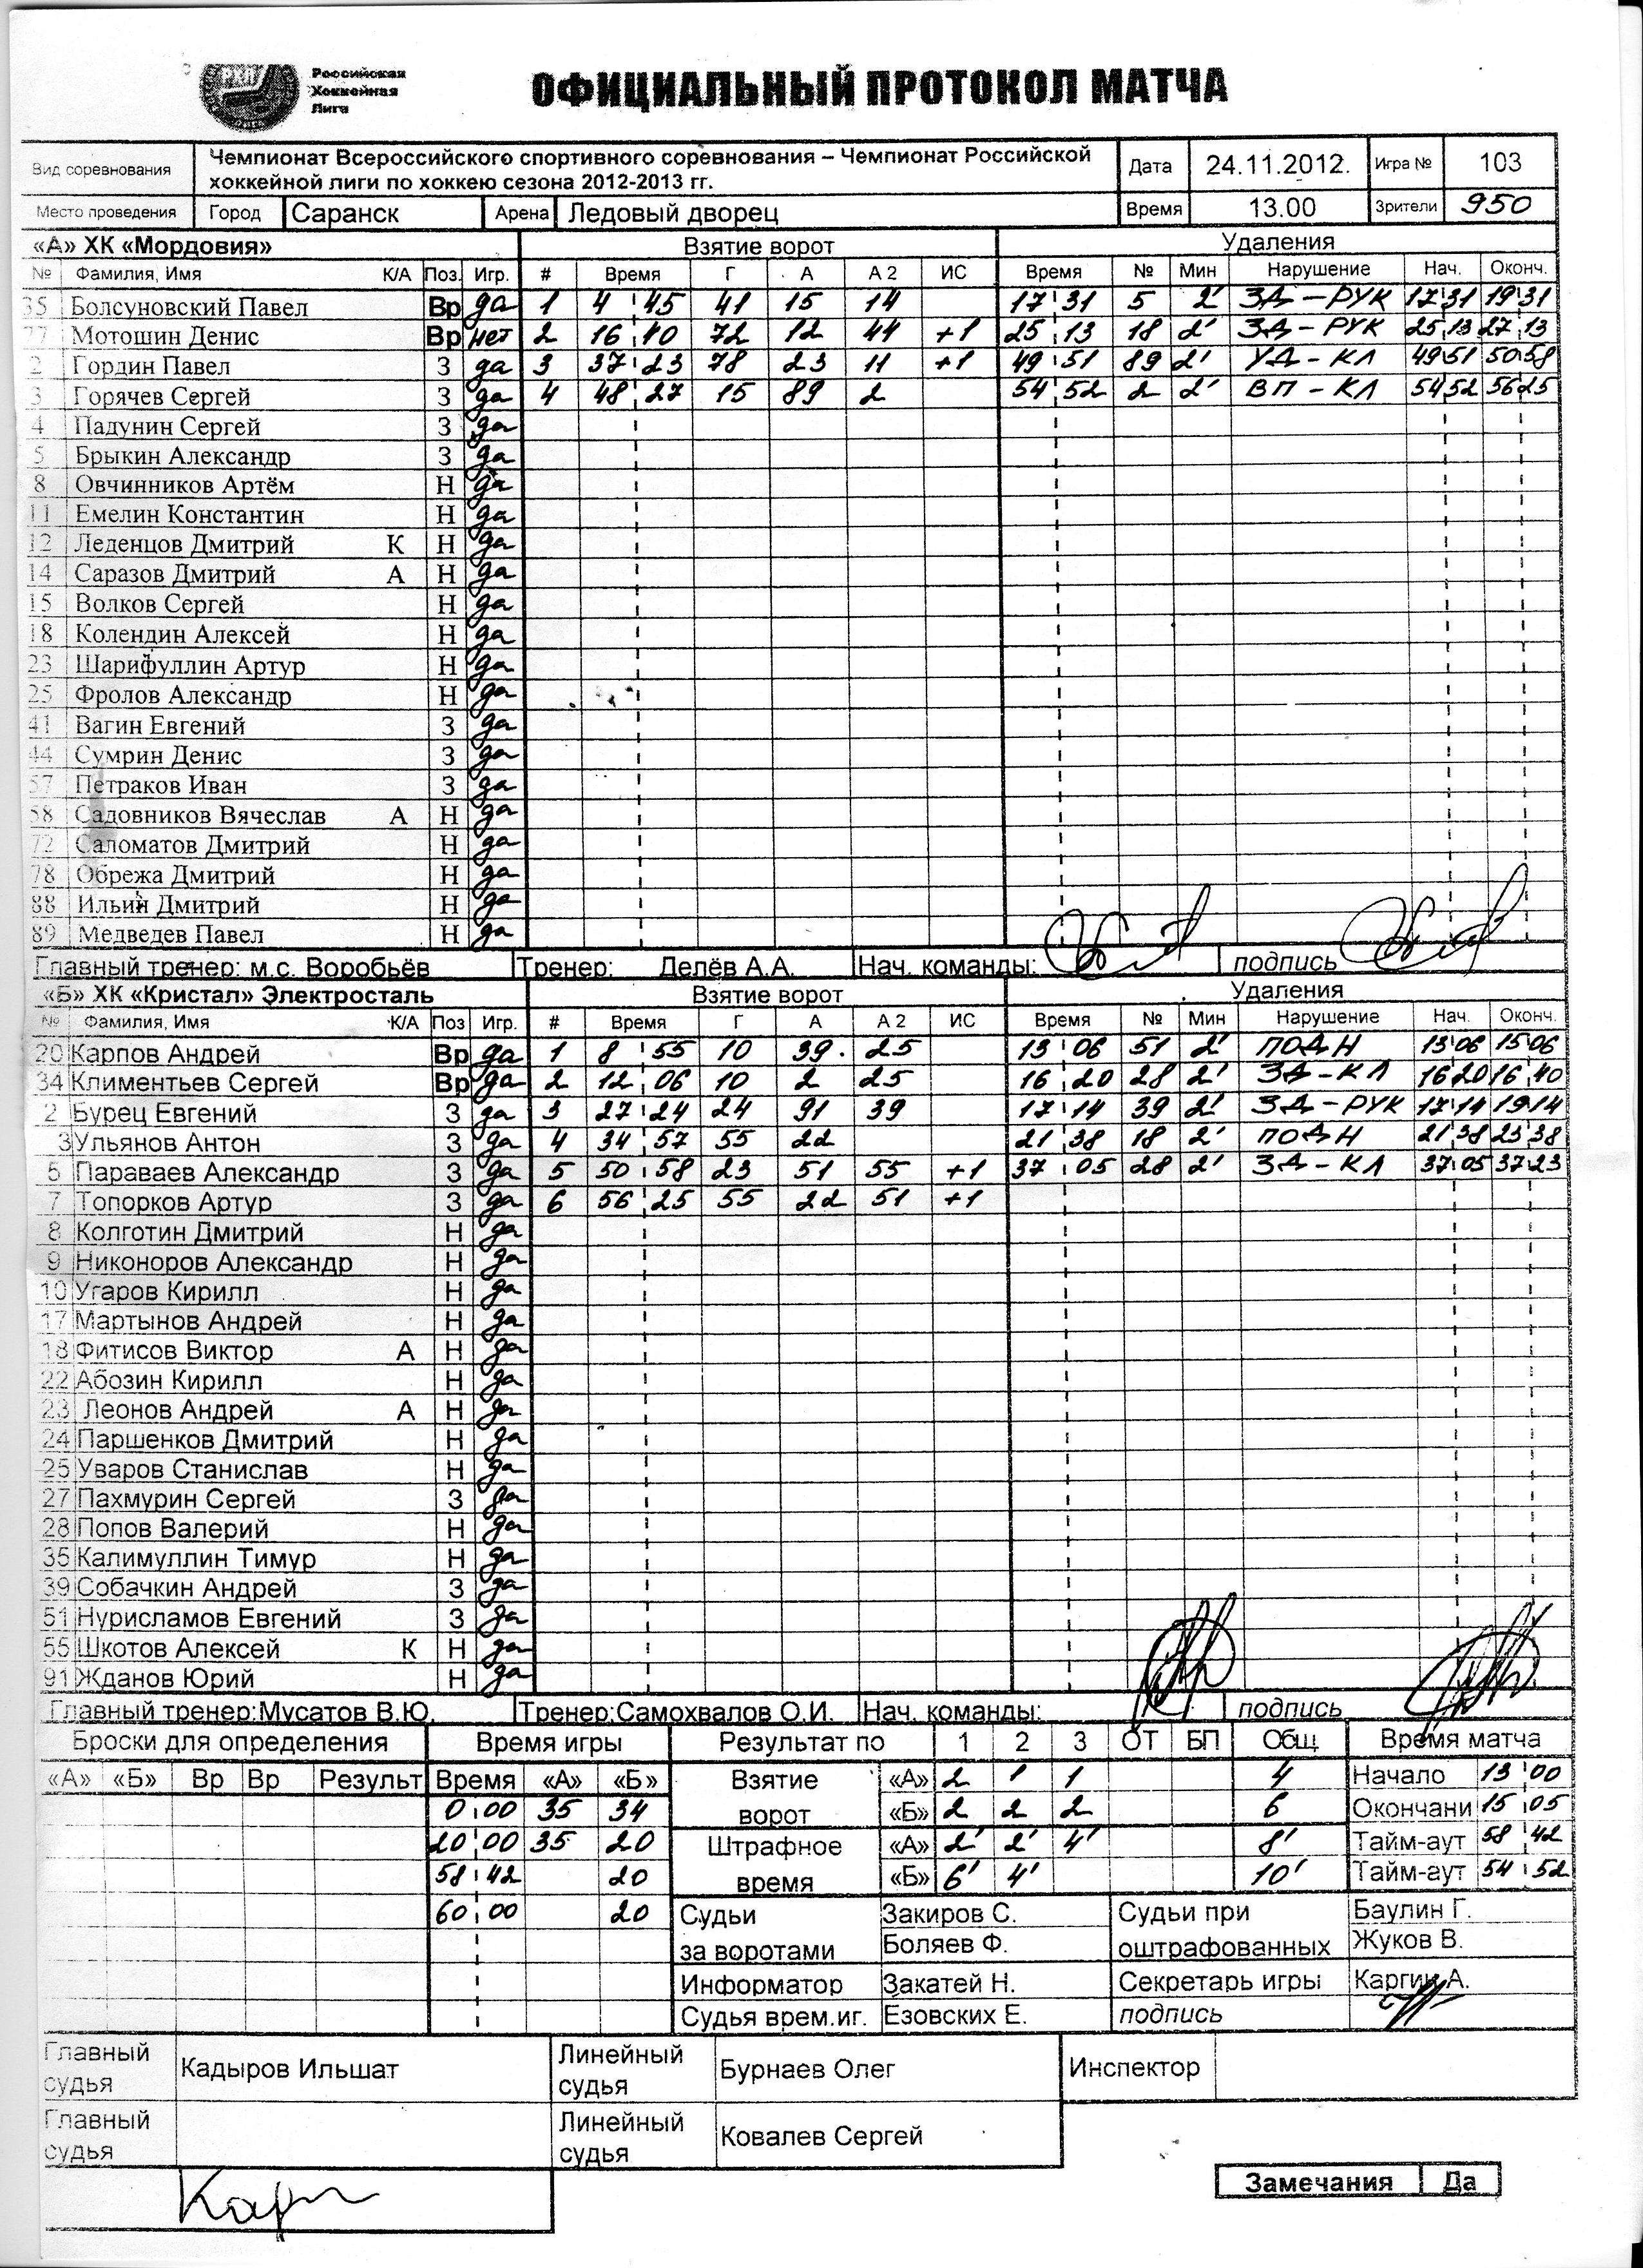 РХЛ Российская
Хоккейная
Лига
ОФИЦИАЛЬНЫЙ ПРОТОКОЛ МАТЧА
Вид соревнования Чемпионат Всероссийского спортивного соревнования – Чемпионат Российской хоккейной лиги по хоккею сезона 2012-2013 гг. Дата 24.11.2012. Игра № 103
Место проведения Город Саранск Арена Ледовый дворец Время 13.00 Зрители 950
«А» ХК «Мордовия» Взятие ворот Удаления
№ Фамилия, Имя К/А Поз. Игр. # Время Г А А 2 ИС Время № Мин Нарушение Нач. Оконч.
35 Болсуновский Павел Вр да 1 4 45 41 15 14 17 31 5 2' ЗД-РУК 17 31 19 31
77 Мотошин Денис Вр нет 2 16 40 72 12 44 +1 25 13 18 2' ЗД-РУК 25 13 27 13
2 Гордин Павел З да 3 37 23 78 23 11 +1 49 51 89 2' УД-КЛ 49 51 50 58
3 Горячев Сергей З да 4 48 27 15 89 2 54 52 2 2' ВП-КЛ 54 52 56 25
4 Падунин Сергей З да
5 Брыкин Александр З да
8 Овчинников Артём Н да
11 Емелин Константин Н да
12 Леденцов Дмитрий К Н да
14 Саразов Дмитрий А Н да
15 Волков Сергей Н да
18 Колендин Алексей Н да
23 Шарифуллин Артур Н да
25 Фролов Александр Н да
41 Вагин Евгений З да
44 Сумрин Денис З да
57 Петраков Иван З да
58 Садовников Вячеслав А Н да
72 Саломатов Дмитрий Н да
78 Обрежа Дмитрий Н да
88 Ильин Дмитрий Н да
89 Медведев Павел Н да
Главный тренер: м.с. Воробьёв Тренер: Делёв А.А. Нач. команды: подпись
«Б» ХК «Кристал» Электросталь Взятие ворот Удаления
№ Фамилия, Имя К/А Поз Игр. # Время Г А А 2 ИС Время № Мин Нарушение Нач. Оконч.
20 Карпов Андрей Вр да 1 8 55 10 39 25 13 06 51 2' ПОДН 13 06 15 06
34 Климентьев Сергей Вр да 2 12 06 10 2 25 16 20 28 2' ЗД-КЛ 16 20 16 40
2 Бурец Евгений З да 3 27 24 24 91 39 17 14 39 2' ЗД-РУК 17 14 19 14
3 Ульянов Антон З да 4 34 57 55 22 21 38 18 2' ПОДН 21 38 23 38
5 Параваев Александр З да 5 50 58 23 51 55 +1 37 05 28 2' ЗД-КЛ 37 05 37 23
7 Топорков Артур З да 6 56 25 55 22 51 +1
8 Колготин Дмитрий Н да
9 Никоноров Александр Н да
10 Угаров Кирилл Н да
17 Мартынов Андрей Н да
18 Фитисов Виктор А Н да
22 Абозин Кирилл Н да
23 Леонов Андрей А Н да
24 Паршенков Дмитрий Н да
25 Уваров Станислав Н да
27 Пахмурин Сергей З да
28 Попов Валерий Н да
35 Калимуллин Тимур Н да
39 Собачкин Андрей З да
51 Нурисламов Евгений З да
55 Шкотов Алексей К Н да
91 Жданов Юрий Н да
Главный тренер:Мусатов В.Ю. Тренер:Самохвалов О.И. Нач. команды: подпись
Броски для определения Время игры Результат по 1 2 3 ОТ БП Общ Время матча
«А» «Б» Вр Вр Результ Время «А» «Б» Взятие ворот «А» 2 1 1 4 Начало 13 00
0 00 35 34 «Б» 2 2 2 6 Окончани 15 05
20 00 35 20 Штрафное время «А» 2' 2' 4' 8' Тайм-аут 58 42
58 42 20 «Б» 6' 4' 10' Тайм-аут 54 52
60 00 20 Судьи за воротами Закиров С. Судьи при оштрафованных Баулин Г.
Боляев Ф. Жуков В.
Информатор Закатей Н. Секретарь игры Каргин А.
Судья врем.иг. Езовских Е. подпись
Главный судья Кадыров Ильшат Линейный судья Бурнаев Олег Инспектор
Главный судья Линейный судья Ковалев Сергей
Замечания Да